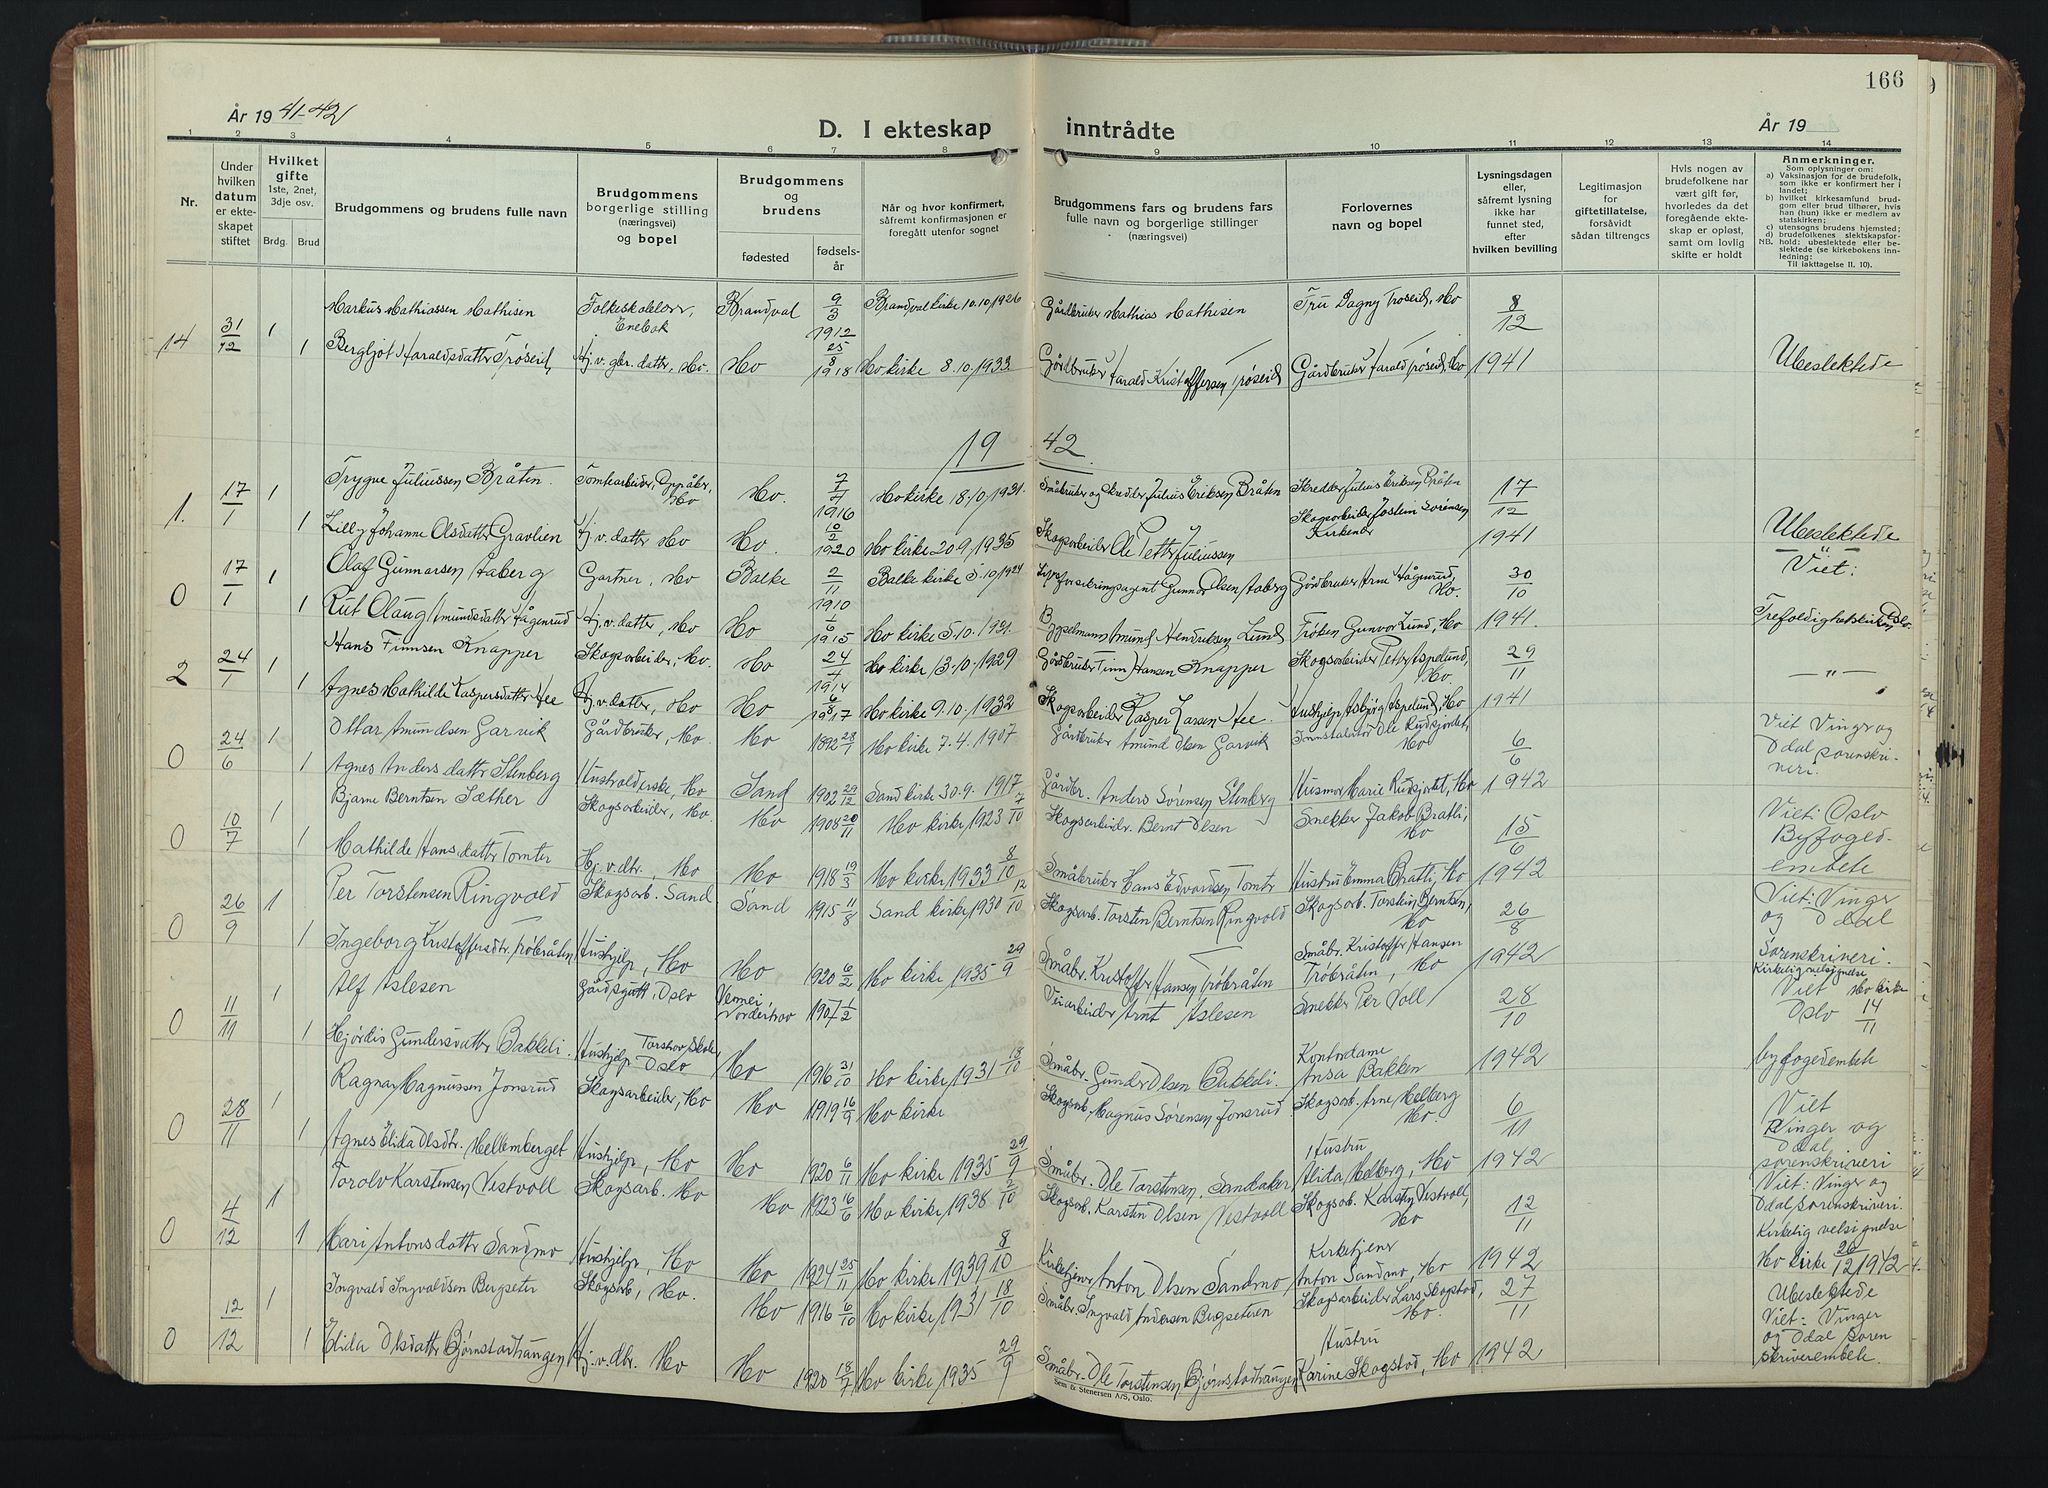 166
År 19 41-42
D. I ekteskap inntrådte
År 19
1 2 3 4 5 6 7 8 9 10 11 12 13 14
Nr.
Under hvilken datum er ekteskapet stiftet
Hvilket gifte 1ste, 2net, 3dje osv.
Brdg. Brud
Brudgommens og brudens fulle navn
Brudgommens borgerlige stilling (næringsvei) og bopel
Brudgommens og brudens
fødested
fødselsår
Når og hvor konfirmert, såfremt konfirmasjonen er foregått utenfor sognet
Brudgommens fars og brudens fars fulle navn og borgerlige stillinger (næringsvei)
Forlovernes navn og bopel
Lysningsdagen eller, såfremt lysning ikke har funnet sted, efter hvilken bevilling
Legitimasjon for giftetillatelse, forsåvidt sådan tiltrengs
Hvis nogen av brudefolkene har vært gift før, hvorledes da det foregående ekteskap er opløst, samt om lovlig skifte er holdt
Anmerkninger.
Som oplysninger om:
a) Vaksinasjon for de brudefolk, som ikke er konfirmert her i landet;
b) hvilket kirkesamfund brudgom eller brud tilhører, hvis han (hun) ikke er medlem av statskirken;
c) utensogns brudens hjemsted;
d) brudefolkenes slektskapsforhold: ubeslektede eller beslektede (se kirkebokens innledning:
NB.
Til Iakttagelse II. 10).
Markus Mathiassen Mathisen Folkeskolelærer, Enebak Brandval 9/3 1912 Brandval kirke 10.10.1926 Gårdbruker Mathias Mathisen Fru Dagny Trøseid, Mo 8/12
14 31/12 1 1 Bergljot Haraldsdatter Trøseid Hj.v. gbr. datter, Mo. Mo 25/8 1918 Mo kirke 8.10.1933 Gårdbruker Harald Kristoffersen Trøseid Gårdbruker Harald Trøseid, Mo 1941 Ubeslektede
19 42
Trygve Juliussen Bråten Tomtearbeider, Mo Mo. 7/4 1916 Mo kirke 18.10.1931. Småbruker og skredder Julius Eriksen Bråten Skredder Julius Eriksen Bråten 17/12
1. 17/1 1 1 Lilly Johanne Olsdatter Gravlien Hj.v. datter Mo Mo. 10/2 1920 Mo kirke 20.9.1935 Skogsarbeider Ole Petter Juliussen Skogsarbeider Jostein Sørensen Kirkenær 1941 Ubeslektede
Olaf Gunnarsen Aaberg Gartner, Mo Balke 2/11 1910 Balke kirke 5.10.1924 Gunnar Olsen Aaberg Gårdbruker Arne Hågenrud, Mo. 30/10 Viet:
0 17/1 1 1 Rut Olaug Amundsdatter Hågenrud Hj.v. datter, Mo Mo 1/6 1915 Mo kirke 5.10.1931. Amund Hendriksen Lund Frøken Gunvor Lund, Mo 1941. Trefoldighetskirken, Oslo.
Hans Finnsen Knapper Skogsarbeider, Mo. Mo 24/4 1914 Mo kirke 13.10.1929 Gårdbruker Finn Hansen Knapper Skogsarbeider Petter Aspelund, Mo. 29/11
2 24/1 1 1 Agnes Mathilde Kaspersdatter Hee Hj.v. datter, Mo Mo 6/8 1917 Mo kirke 9.10.1932 Skogsarbeider Kasper Larsen Hee. Hushjelp Asbjørg Aspelund, Mo 1941 — " —
Ottar Amundsen Garvik Gårdbruker, Mo. Mo 1892 28/1 Mo kirke 7.4.1907 Gårdbruker Amund Olsen Garvik Innstalatør Ole Rudsjordet, Mo 6/6 Viet Vinger og
0 24/6 1 1 Agnes Andersdatter Stenberg Husholderske, Mo Sand 1902 29/12 Sand kirke 30.9.1917 Gårdbr. Anders Sørensen Stenberg Husmor Marie Rudsjordet, Mo 1942 Odal sorenskriveri.
Bjarne Berntsen Sæther Skogsarbeider, Mo. Mo 1908 20/11 Mo kirke 1923 7/10 Skogsarbeider. Bernt Olsen Snekker Jakob Bratli, Mo 15/6 Viet: Oslo
0 10/7 1 1 Mathilde Hansdatter Tomter Hj.v. dtr., Mo Mo 1918 19/3 Mo kirke 1933 8/10 Småbruker Hans Edvardsen Tomter Hustru Emma Bratli, Mo 1942 Byfogedembete
Per Torstensen Ringvold Skogsarb. Sand Sand 1915 11/8 Sand kirke 1930 12/10 Skogsarb. Torsten Berntsen Ringvold Skogsarb. Torstein Berntsen, Mo 26/8 Viet: Vinger og Odal
0 26/9 1 1 Ingeborg Kristoffersdtr. Trøbråten Hushjelp, Mo Mo 1920 6/2 Mo kirke 1935 29/9 Småbr. Kristoffer Hansen Trøbråten Småbr. Kristoffer Hansen Trøbråten, Mo 1942 Sorenskriveri.
Alf Aslesen Gårdsgutt, Oslo Nordenhov 1907 1/2 Veiarbeider Arnt Aslesen Snekker Per Voll 28/10 Kirkelig velsignelse Mo kirke 14/11 Viet Oslo
0 11/11 1 1 Hjørdis Gundersdatter Bakkeli. Hushjelp Torshov skole, Oslo Mo 1916 31/10 Mo kirke 1931 18/10 Småbr. Gunder Olsen Bakkeli. Kontordame Ansa Bakken 1942 byfogedembete
Ragnar Magnussen Jonsrud Skogsarbeider, Mo Mo 1919 16/9 Mo kirke Skogsarb. Magnus Sørensen Jonsrud Skogsarb. Arne Melberg Mo. 6/11 Viet
0 28/11 1 1 Agnes Elida Olsdtr. Mellemberget Hushjelp, Mo Mo 1920 6/11 Mo kirke 1935 29/9 Småbr. Ole Torstensen, Sandaker Hustru Alida Melberg, Mo 1942 Vinger og Odal sorenskriveri
Torolv Karstensen Vestvoll Skogsarb. Mo Mo 1923 16/6 Mo kirke 1938 2/10 Skogsarb. Karsten Olsen Vestvoll Skogsarb. Karsten Vestvoll, Mo 12/11 Viet: Vinger og Odal sorenskriveri.
0 4/12 1 1 Mari Antonsdatter Sandmo Hushjelp, Mo Mo 1924 25/11 Mo kirke 1939 8/10 Kirketjener Anton Olsen Sandmo Kirketjener Anton Sandmo, Mo 1942 Kirkelig velsignelse Mo kirke 26/12 1942
Ingvald Ingvaldsen Bergseter Skogsarb, Mo. Mo 1916 6/10 Mo kirke 1931 18/10 Småbr. Ingvald Andersen Bergseteren Skogsarbeider Lars Skogstad, Mo. 27/11 Ubeslektede
0 12/12 1 1 Elida Olsdatter Bjørnstadhaugen Hj.v. dtr. Mo Mo 1920 18/7 Mo kirke 1935 29/9 Småbr. Ole Torstensen Bjørnstadhaugen Hustru Karine Skogstad, Mo 1942 Viet: Vinger og Odal sorenskriverembete.
Sem & Stenersen A/S, Oslo.